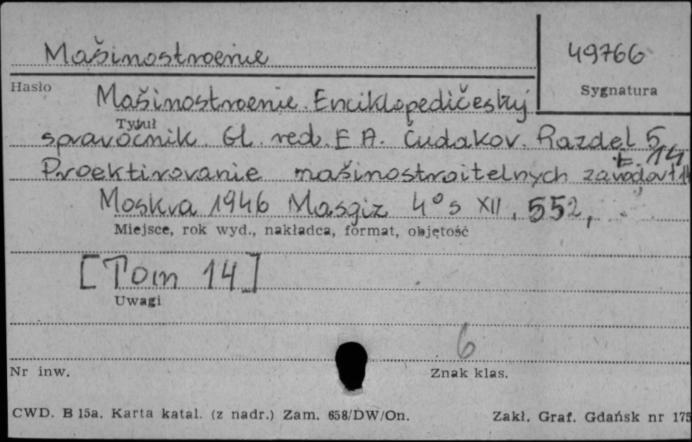 Mašinostroenie
49766
Hasło
Sygnatura
Mašinostroenie. Enciklopedičeskij
Tytuł
spravočnik. Gl. red. E A. Čudakov. Razdel 5
t. 14
Proektirovanie mašinostroitelnych zavodov
Moskva 1946 Masgiz 4° s XII, 552,
Miejsce, rok wyd., nakładca, format, objętość
[Tom 14]
Uwagi
6
Nr inw.
Znak klas.
CWD. B 15a. Karta katal. (z nadr.) Zam. 658/DW/On.
Zakł. Graf. Gdańsk nr 175